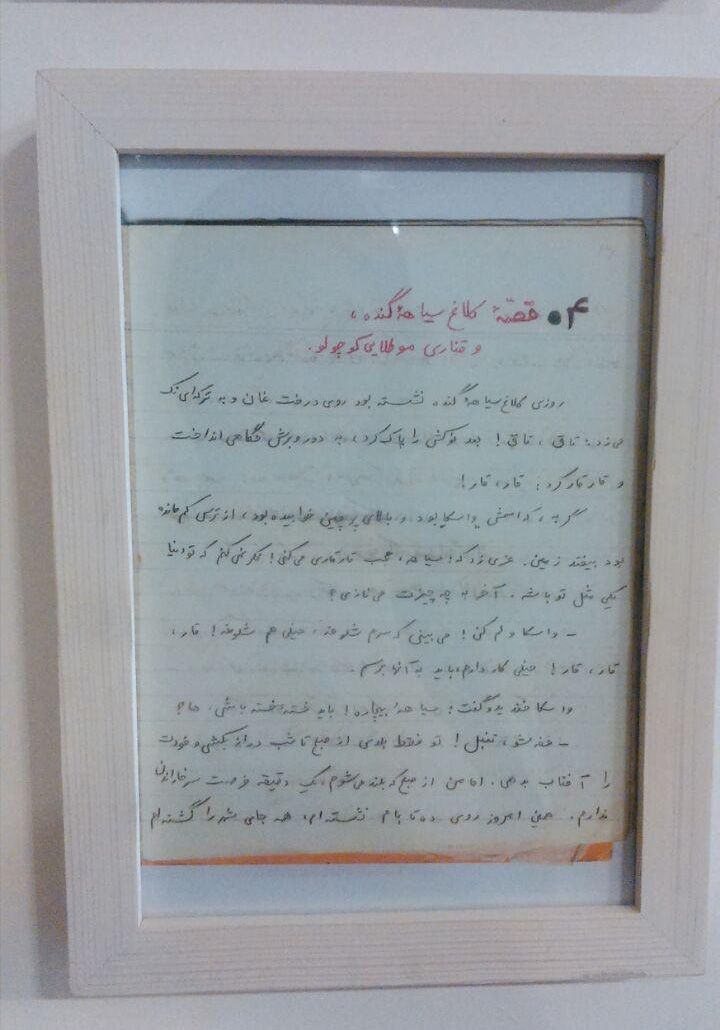 ۴۰ قصّهٔ کلاغ سیاههٔ گنده،
و قناری موطلایی کوچولو.
روزی کلاغ سیاههٔ گنده نشسته بود روی درخت غان و به ترکه‌ای تک
می‌زد: تاق، تاق! بعد نوکش را پاک کرد، به دور و برش نگاهی انداخت
و قارقار کرد: قار، قار!
گربه، که اسمش واسکا بود، و بالای پرچین خوابیده بود، از ترس کم مانده
بود بیفتد زمین. غری زد که: سیاهه، عجب قارقاری می‌کنی! فکر نمی‌کنم که تو دنیا
یکی مثل تو باشه. آخر به چه چیزت می‌نازی؟
- واسکا ولم کن! می‌بینی که سرم شلوغه، خیلی هم شلوغه! قار،
قار، قار! خیلی کار دارم، باید به آنها برسم.
واسکا خندید و گفت: سیاههٔ بیچاره! باید خستهٔ خسته باشی، ها؟
- خفه شو، تنبل! تو فقط بلدی از صبح تا شب دراز بکشی و خودت
را آفتاب بدهی. اما من از صبح که بلند می‌شوم، یک دقیقه فرصت سر خاراندن
ندارم. همین امروز روی ده تا بام نشسته‌ام، همه جای شهر را گشته‌ام